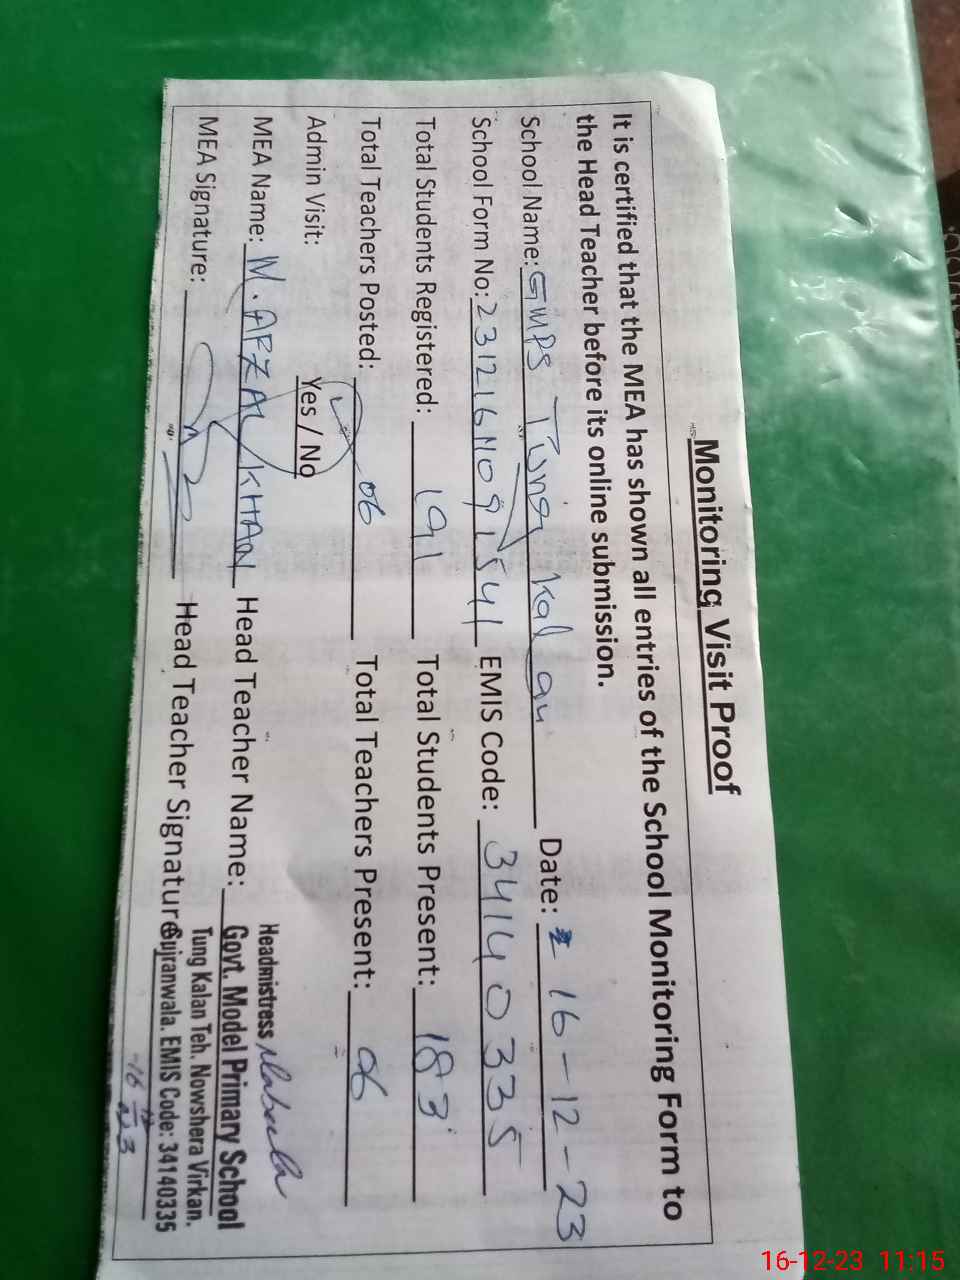 Monitoring Visit Proof
It is certified that the MEA has shown all entries of the School Monitoring Form to
the Head Teacher before its online submission.
School Name: GMPS Tung Kalan Date: 16-12-23
School Form No: 231216M091541 EMIS Code: 34140335
Total Students Registered: 191 Total Students Present: 183
Total Teachers Posted: 06 Total Teachers Present: 06
Admin Visit: Yes / No
MEA Name: M. AFZAL KHAN Head Teacher Name:
MEA Signature: Head Teacher Signature
Headmistress
Govt. Model Primary School
Tung Kalan Teh. Nowshera Virkan.
Gujranwala. EMIS Code: 34140335
16-12-23 11:15